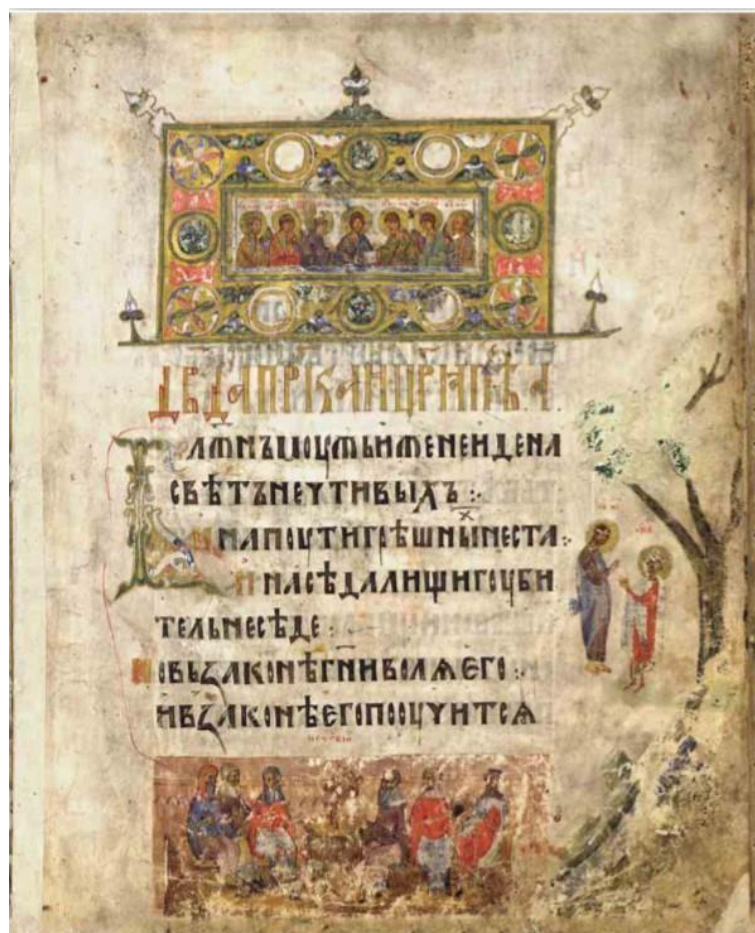 ДВДАПРРКАИЦРѦПѢ·А·
БЛЖНЪМОУЖЬИЖЕНЕИДЕНА
СВѢТЪНЕЧТИВЫХЪ:·
ИНАПОУТИГРѢШНЫХНЕСТА:·
ИНАСѢДАЛИЩИГОУБИ
ТЕЛЬНЕСѢДЕ:·
НОВЬЗАКОНѢГНИВОЛѦЕГО:·
ИВЗАКОНѢЕГОПООУЧИТСѦ